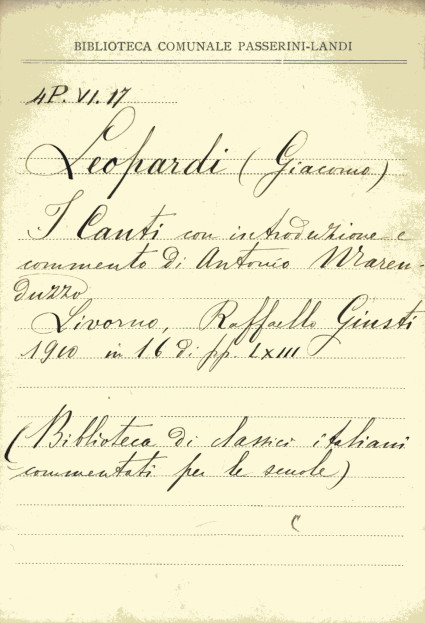 BIBLIOTECA COMUNALE PASSERINI-LANDI
4P. VI. 17
Leopardi (Giacomo)
I Canti con introduzione e
commento di Antonio Maren-
duzzo
Livorno, Raffaello Giusti
1910 in 16 di pp. LXIII
(Biblioteca di classici italiani
commentati per le scuole)